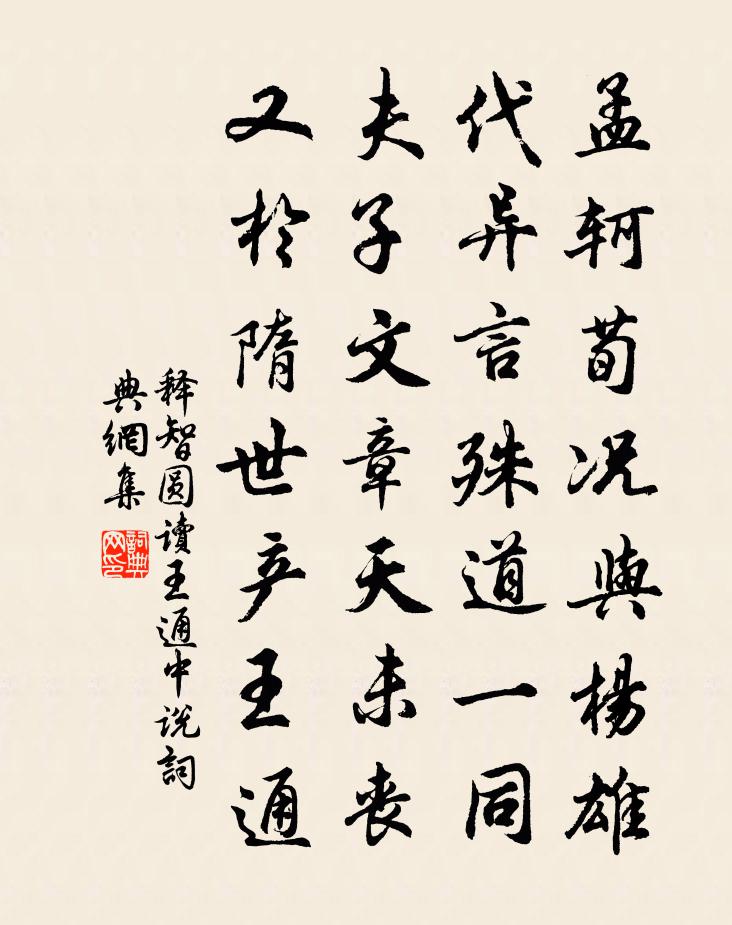 孟轲荀况與楊雄
代异言殊道一同
夫子文章天未丧
又於隋世产王通
释智圆讀王通中说詞
典網集
詞典网印